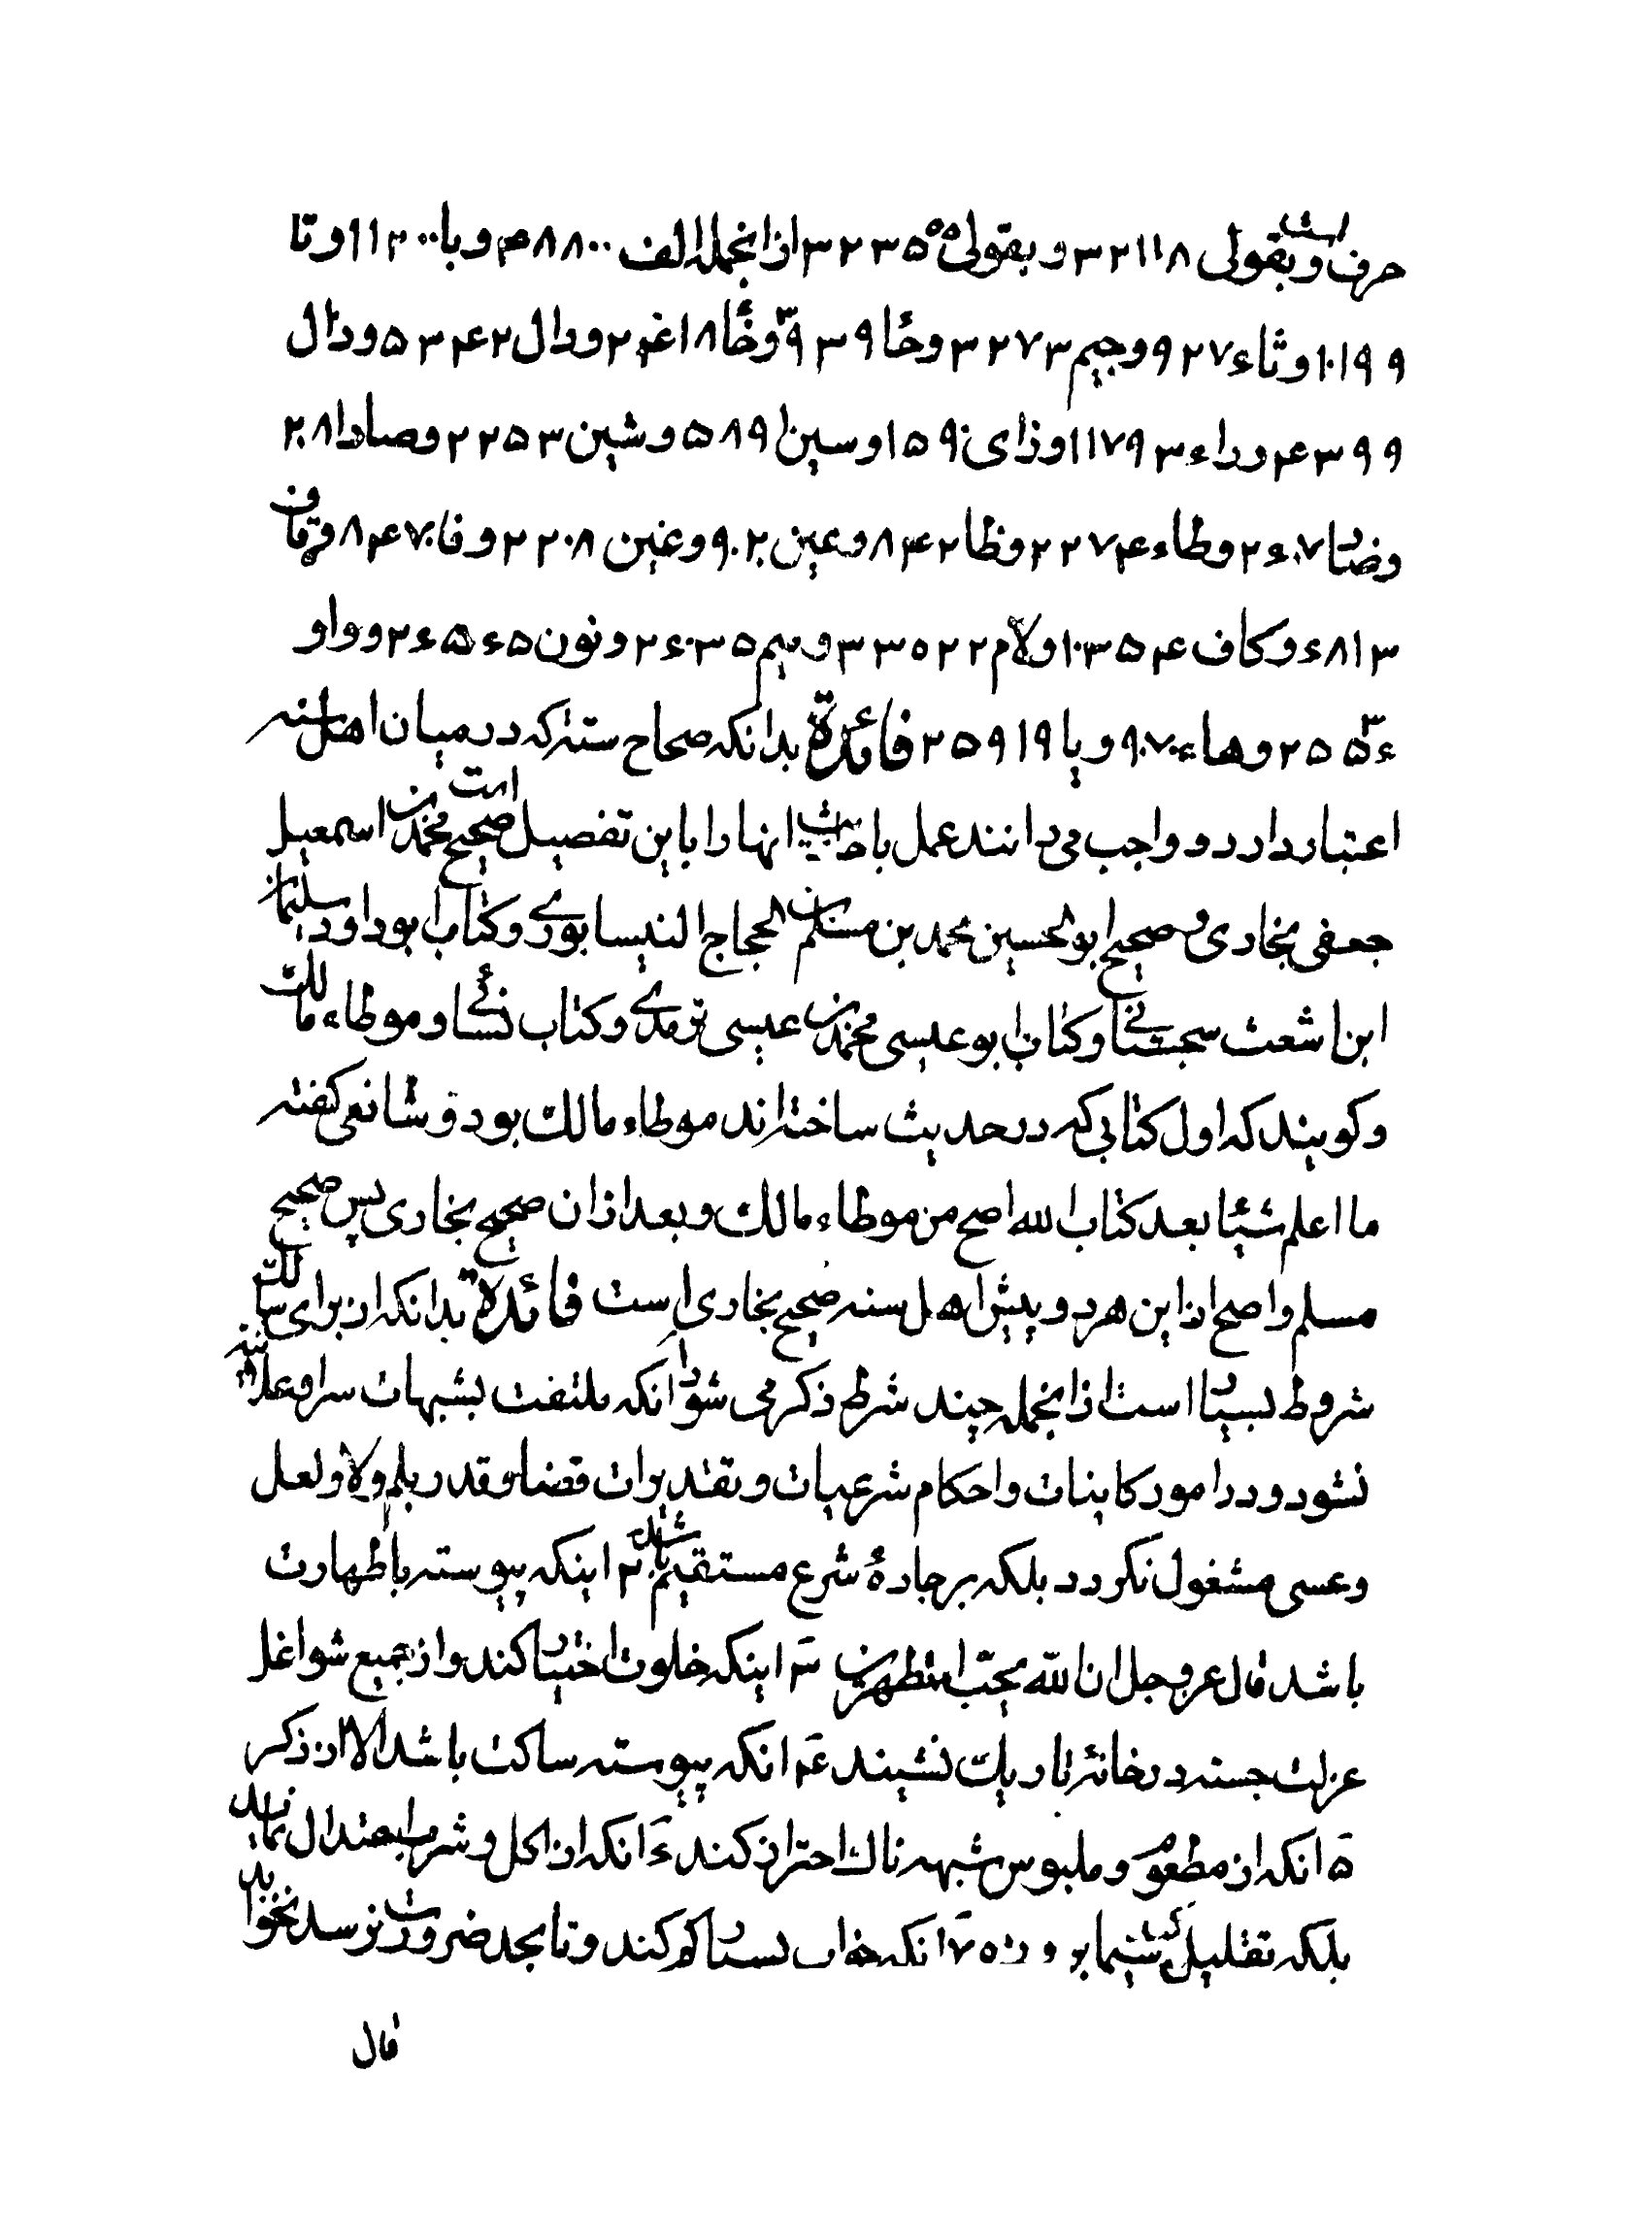 حرف است و بقولی ۳۲۱۱۸ و بقولی ۳۲۳۵۵۵ ازانجمله الف ۴۸۸۰۰ و با ۱۱۲۰۰ و تا
۱۰۱۹۹ و ثاء ۹۲۷ و جیم ۳۲۷۳ و حا ۳۹۳۹ و خا ۲۴۱۸ و دال ۵۳۴۲ و ذال
۴۳۹۹ و راء ۱۱۷۹۳ و زای ۱۵۹ و سین ۵۸۹۱ و شین ۲۲۵۳ و صاد ۲۰۸۱
و ضاد ۲۶۰۷ و طاء ۲۲۷۴ و ظا ۸۴۲ و عین ۹۰۲۰ و غین ۲۲۰۸ و فا ۸۴۷۰ و قاف
۶۸۱۳ و کاف ۱۰۳۵۴ و لام ۳۳۵۲۲ و میم ۲۶۰۳۵ و نون ۲۶۵۶۵ و واو
۲۵۵۳۶ و هاء ۹۰۷۰ و یا ۲۵۹۱۹ فائدة بدانکه صحاح سته که در میان اهل سنه
اعتبار دارد و واجب می دانند عمل باحادیث انها را باین تفصیل است صحیح محمد بن اسمعیل
جعفی بخاری و صحیح ابو الحسین محمد بن مسلم بن الحجاج النیسابوری و کتاب ابو داود سلیمان
ابن اشعث سجستانی و کتاب ابو عیسی محمد بن عیسی ترمذی و کتاب نسائی و موطاء مالک
و کویند که اول کتابی که در حدیث ساخته اند موطاء مالک بود و شافعی کفته
ما اعلم شیئا بعد کتاب الله اصح من موطاء مالک و بعد ازان صحیح بخاری پس صحیح
مسلم و اصح از این هر دو پیش اهل سنه صحیح بخاری است فائدة بدانکه از برای سالک
شروط بسیار است ازانجمله چند شرط ذکر می شود ا انکه ملتفت بشبهات سرا و علانیه
نشود و در امور کاینات و احکام شرعیات و تقدیرات قضا و قدر بلم و لا و لعل
و عسی مشغول نکردد بلکه بر جادهٔ شرع مستقیم باشد ۲ اینکه پیوسته با طهارت
باشد قال عز و جل ان الله یحب المتطهرین ۳ اینکه خلوت اختیار کند و از جمیع شواغل
عزلت جسته در خانه تاریک نشیند ۴ انکه پیوسته ساکت باشد الا از ذکر
۵ انکه از مطعوم و ملبوس شبهه ناک احتراز کند ۶ انکه از اکل و شرب اعتدال نماید
بلکه تقلیل ۷ انکه خواب بسیار کم کند و تا بحد ضرورت نرسد نخوابد
قال